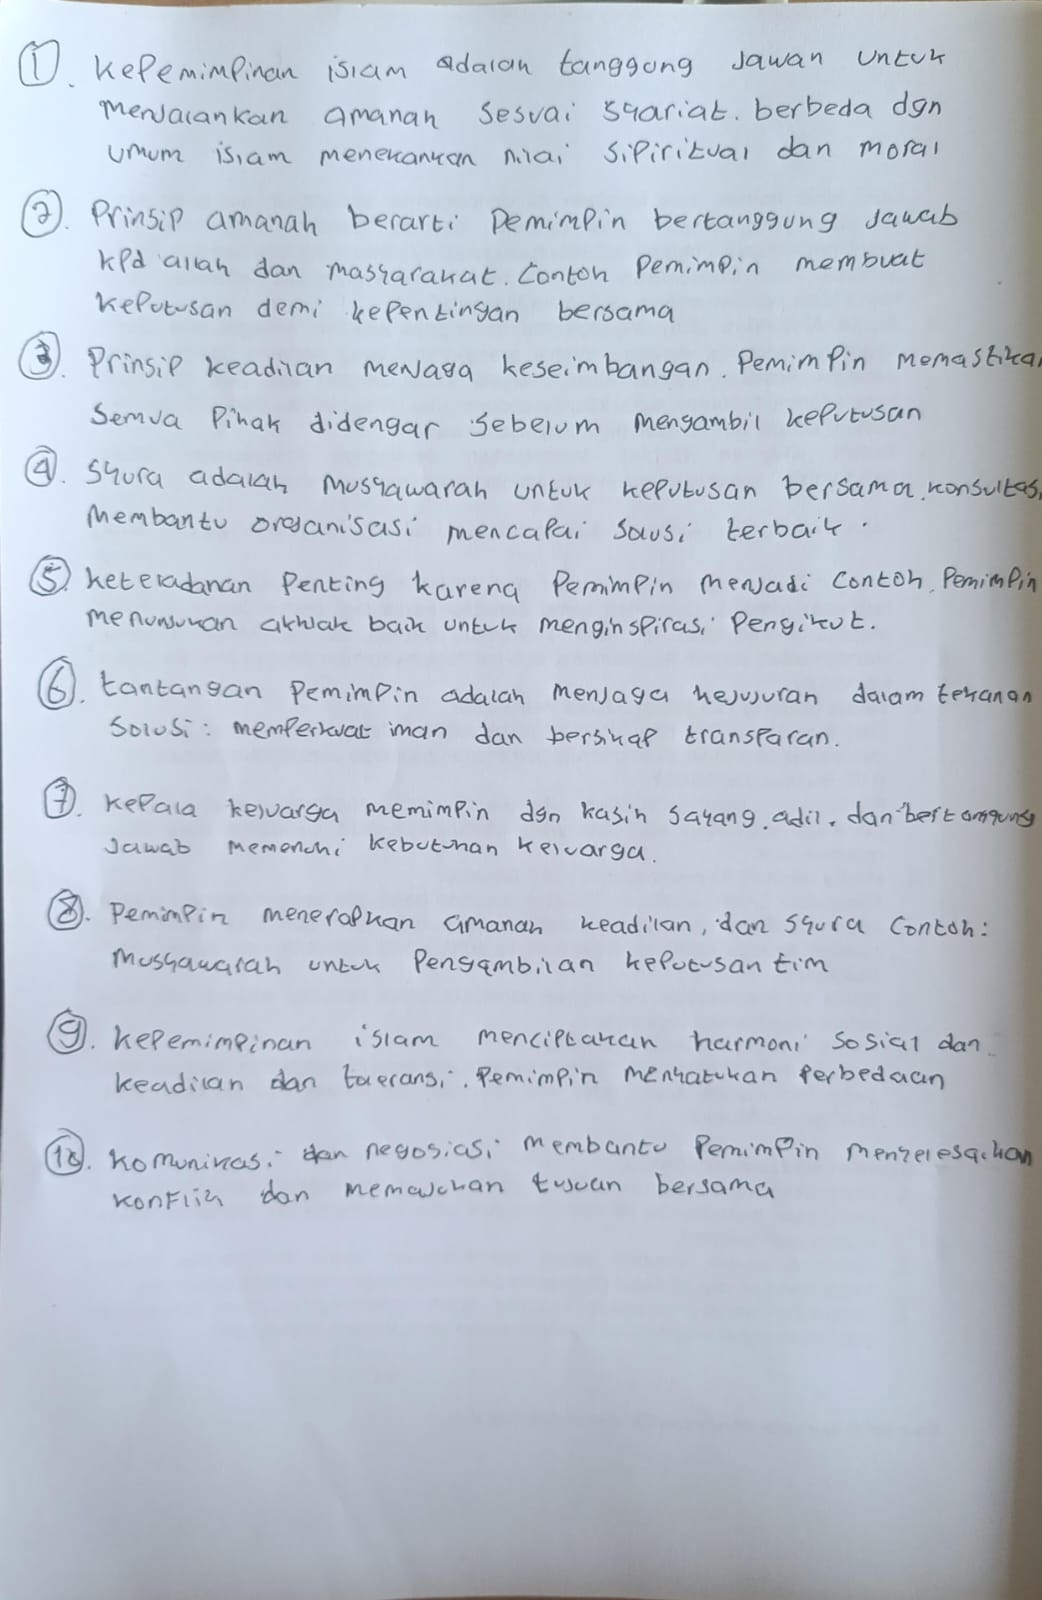 1. Kepemimpinan islam adalah tanggung jawan untuk
menjalankan amanah sesuai syariat. berbeda dgn
umum islam menekankan nilai sipiritual dan moral
2. Prinsip amanah berarti pemimpin bertanggung jawab
kpd allah dan masyarakat. Contoh pemimpin membuat
keputusan demi kepentingan bersama
3. Prinsip keadilan menjaga keseimbangan. Pemimpin memastikan
semua pihak didengar sebelum mengambil keputusan
4. Syura adalah musyawarah untuk keputusan bersama. konsultasi
membantu organisasi mencapai solusi terbaik.
5. keteladanan penting karena pemimpin menjadi contoh. Pemimpin
menunjukan akhlak baik untuk menginspirasi pengikut.
6. tantangan pemimpin adalah menjaga kejujuran dalam tekanan
Solusi: memperkuat iman dan bersikap transparan.
7. Kepala keluarga memimpin dgn kasih sayang, adil, dan bertanggung
jawab memenuhi kebutuhan keluarga.
8. Pemimpin menerapkan amanah keadilan, dan syura Contoh:
musyawarah untuk pengambilan keputusan tim
9. Kepemimpinan islam menciptakan harmoni sosial dan
keadilan dan toleransi. Pemimpin menyatukan perbedaan
10. Komunikasi dan negosiasi membantu pemimpin menyelesaikan
konflik dan memajukan tujuan bersama